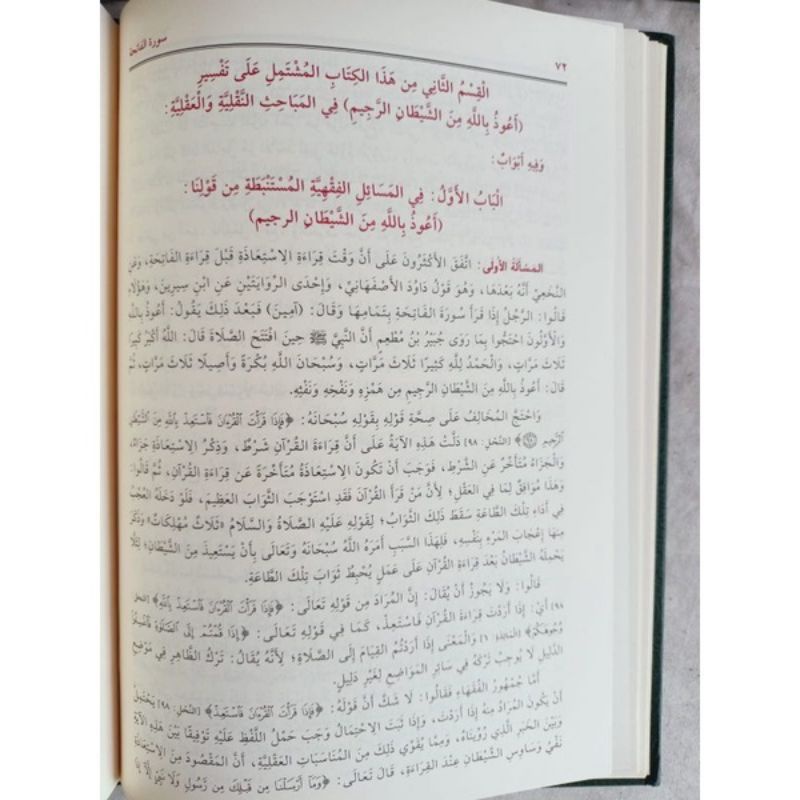 ٧٢
سورة الفاتحة
الْقِسْمُ الثَّانِي مِن هَذَا الكِتَابِ المُشْتَمِلِ عَلَى تَفْسِيرِ
(أَعُوذُ بِاللَّهِ مِنَ الشَّيْطَانِ الرَّجِيمِ) فِي المَبَاحِثِ النَّقْلِيَّةِ وَالْعَقْلِيَّةِ:
وَفِيهِ أَبْوَابٌ:
الْبَابُ الأَوَّلُ: فِي المَسَائِلِ الفِقْهِيَّةِ المُسْتَنْبَطَةِ مِن قَوْلِنَا:
(أَعُوذُ بِاللَّهِ مِنَ الشَّيْطَانِ الرجيم)
المَسْأَلَةُ الأُولَى: اتَّفَقَ الأَكْثَرُونَ عَلَى أَنَّ وَقْتَ قِرَاءَةِ الِاسْتِعَاذَةِ قَبْلَ قِرَاءَةِ الفَاتِحَةِ، وَعَنِ
النَّخَعِيِّ أَنَّهُ بَعْدَهَا، وَهُوَ قَوْلُ دَاوُدَ الأَصْفَهَانِيِّ، وَإِحْدَى الرِّوَايَتَيْنِ عَنِ ابْنِ سِيرِينَ، وَهَؤُلَاءِ
قَالُوا: الرَّجُلُ إِذَا قَرَأَ سُورَةَ الفَاتِحَةِ بِتَمَامِهَا وَقَالَ: (آمِينَ) فَبَعْدَ ذَلِكَ يَقُولُ: أَعُوذُ بِاللَّهِ
وَالأَوَّلُونَ احْتَجُّوا بِمَا رَوَى جُبَيْرُ بْنُ مُطْعِمٍ أَنَّ النَّبِيَّ ﷺ حِينَ افْتَتَحَ الصَّلَاةَ قَالَ: اللَّهُ أَكْبَرُ كَبِيرًا
ثَلَاثَ مَرَّاتٍ، وَالْحَمْدُ لِلَّهِ كَثِيرًا ثَلَاثَ مَرَّاتٍ، وَسُبْحَانَ اللَّهِ بُكْرَةً وَأَصِيلًا ثَلَاثَ مَرَّاتٍ، ثُمَّ
قَالَ: أَعُوذُ بِاللَّهِ مِنَ الشَّيْطَانِ الرَّجِيمِ مِن هَمْزِهِ وَنَفْخِهِ وَنَفْثِهِ.
وَاحْتَجَّ المُخَالِفُ عَلَى صِحَّةِ قَوْلِهِ بِقَوْلِهِ سُبْحَانَهُ: ﴿فَإِذَا قَرَأْتَ الْقُرْءَانَ فَاسْتَعِذْ بِاللَّهِ مِنَ الشَّيْطَانِ
الرَّجِيمِ ٩٨﴾ [النَّحْل: ٩٨] دَلَّتْ هَذِهِ الآيَةُ عَلَى أَنَّ قِرَاءَةَ القُرْآنِ شَرْطٌ، وَذِكْرُ الِاسْتِعَاذَةِ جَزَاءٌ،
وَالْجَزَاءُ مُتَأَخِّرٌ عَنِ الشَّرْطِ، فَوَجَبَ أَنْ تَكُونَ الِاسْتِعَاذَةُ مُتَأَخِّرَةً عَن قِرَاءَةِ القُرْآنِ، ثُمَّ قَالُوا:
وَهَذَا مُوَافِقٌ لِمَا فِي العَقْلِ؛ لِأَنَّ مَنْ قَرَأَ القُرْآنَ فَقَدِ اسْتَوْجَبَ الثَّوَابَ العَظِيمَ، فَلَوْ دَخَلَهُ العُجْبُ
فِي أَدَاءِ تِلْكَ الطَّاعَةِ سَقَطَ ذَلِكَ الثَّوَابُ؛ لِقَوْلِهِ عَلَيْهِ الصَّلَاةُ وَالسَّلَامُ «ثَلَاثٌ مُهْلِكَاتٌ» وَذَكَرَ
مِنْهَا إِعْجَابَ المَرْءِ بِنَفْسِهِ، فَلِهَذَا السَّبَبِ أَمَرَهُ اللَّهُ سُبْحَانَهُ وَتَعَالَى بِأَنْ يَسْتَعِيذَ مِنَ الشَّيْطَانِ؛ لِئَلَّا
يَحْمِلَهُ الشَّيْطَانُ بَعْدَ قِرَاءَةِ القُرْآنِ عَلَى عَمَلٍ يُحْبِطُ ثَوَابَ تِلْكَ الطَّاعَةِ.
قَالُوا: وَلَا يَجُوزُ أَنْ يُقَالَ: إِنَّ المُرَادَ مِن قَوْلِهِ تَعَالَى: ﴿فَإِذَا قَرَأْتَ الْقُرْءَانَ فَاسْتَعِذْ بِاللَّهِ﴾ [النَّحْل:
٩٨] أَيْ: إِذَا أَرَدْتَ قِرَاءَةَ القُرْآنِ فَاسْتَعِذْ، كَمَا فِي قَوْلِهِ تَعَالَى: ﴿إِذَا قُمْتُمْ إِلَى الصَّلَوٰةِ فَاغْسِلُوا
وُجُوهَكُمْ﴾ [المَائِدَة: ٦] وَالْمَعْنَى إِذَا أَرَدْتُمُ القِيَامَ إِلَى الصَّلَاةِ؛ لِأَنَّهُ يُقَالُ: تَرْكُ الظَّاهِرِ فِي مَوْضِعِ
الدَّلِيلِ لَا يُوجِبُ تَرْكَهُ فِي سَائِرِ المَوَاضِعِ لِغَيْرِ دَلِيلٍ.
أَمَّا جُمْهُورُ الفُقَهَاءِ فَقَالُوا: لَا شَكَّ أَنَّ قَوْلَهُ: ﴿فَإِذَا قَرَأْتَ الْقُرْءَانَ فَاسْتَعِذْ﴾ [النَّحْل: ٩٨] يَحْتَمِلُ
أَنْ يَكُونَ المُرَادُ مِنْهُ إِذَا أَرَدْتَ، وَإِذَا ثَبَتَ الِاحْتِمَالُ وَجَبَ حَمْلُ اللَّفْظِ عَلَيْهِ تَوْفِيقًا بَيْنَ هَذِهِ الآيَةِ
وَبَيْنَ الخَبَرِ الَّذِي رَوَيْنَاهُ، وَمِمَّا يُقَوِّي ذَلِكَ مِنَ المُنَاسَبَاتِ العَقْلِيَّةِ، أَنَّ المَقْصُودَ مِنَ الِاسْتِعَاذَةِ
نَفْيُ وَسَاوِسِ الشَّيْطَانِ عِنْدَ القِرَاءَةِ، قَالَ تَعَالَى: ﴿وَمَا أَرْسَلْنَا مِن قَبْلِكَ مِن رَّسُولٍ وَلَا نَبِيٍّ إِلَّا إِذَا